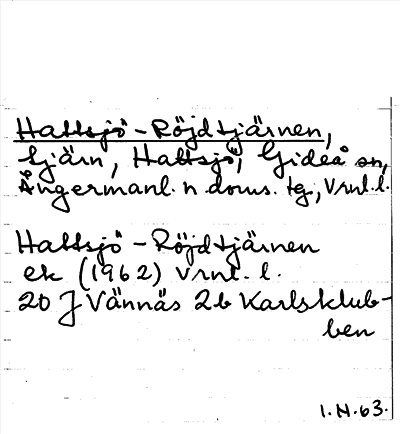 Hattsjö-Röjdtjärnen,
tjärn, Hattsjö, Gideå sn,
Ångermanl. n doms. tg, Vrnl.l.
Hattsjö-Röjdtjärnen
ek (1962) Vrnl. l.
20 J Vännäs 2b Karlsklub-
ben
1.N.63.